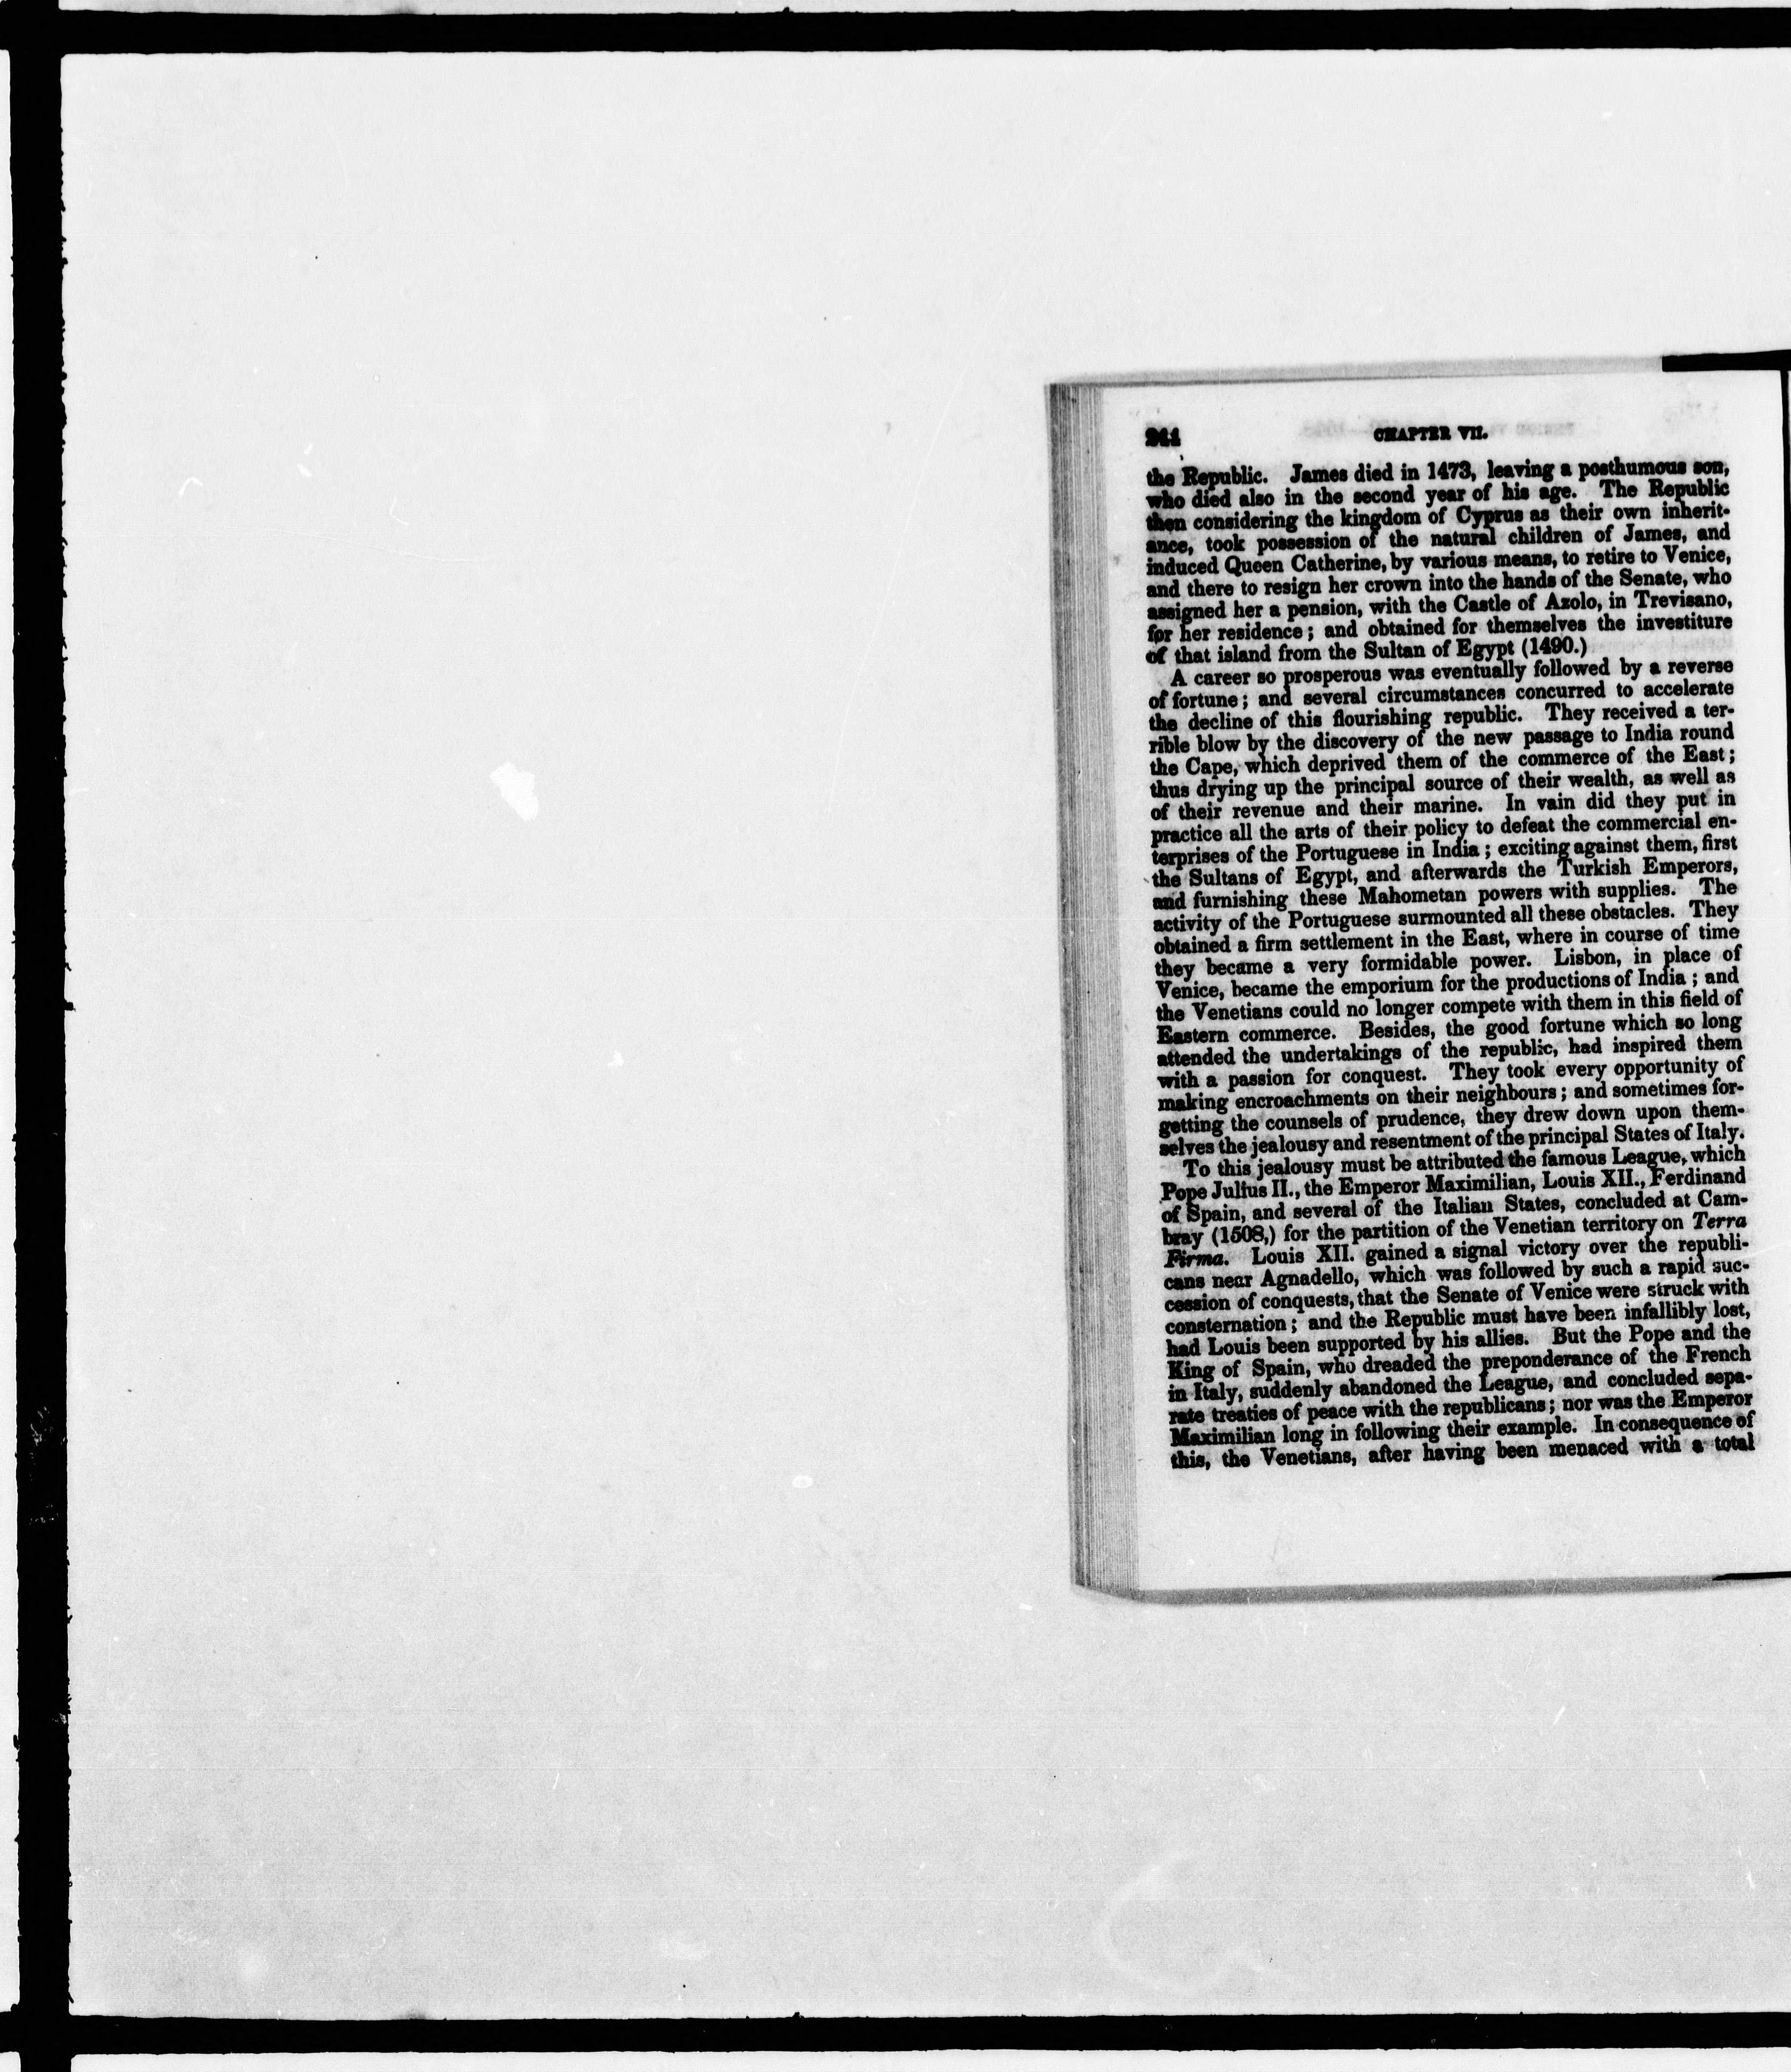 CHAPTER VII.
the Republic. James died in 1473, leaving a posthumous son,
who died also in the second year of his age. The Republic
then considering the kingdom of Cyprus as their own inherit-
ance, took possession of the natural children of James, and
induced Queen Catherine, by various means, to retire to Venice,
and there to resign her crown into the hands of the Senate, who
assigned her a pension, with the Castle of Azolo, in Trevisano,
for her residence; and obtained for themselves the investiture
of that island from the Sultan of Egypt (1490.)
A career so prosperous was eventually followed by a reverse
of fortune; and several circumstances concurred to accelerate
the decline of this flourishing republic. They received a ter-
rible blow by the discovery of the new passage to India round
the Cape, which deprived them of the commerce of the East;
thus drying up the principal source of their wealth, as well as
of their revenue and their marine. In vain did they put in
practice all the arts of their policy to defeat the commercial en-
terprises of the Portuguese in India; exciting against them, first
the Sultans of Egypt, and afterwards the Turkish Emperors,
and furnishing these Mahometan powers with supplies. The
activity of the Portuguese surmounted all these obstacles. They
obtained a firm settlement in the East, where in course of time
they became a very formidable power. Lisbon, in place of
Venice, became the emporium for the productions of India; and
the Venetians could no longer compete with them in this field of
Eastern commerce. Besides, the good fortune which so long
attended the undertakings of the republic, had inspired them
with a passion for conquest. They took every opportunity of
making encroachments on their neighbours; and sometimes for-
getting the counsels of prudence, they drew down upon them-
selves the jealousy and resentment of the principal States of Italy.
To this jealousy must be attributed the famous League, which
Pope Julius II., the Emperor Maximilian, Louis XII., Ferdinand
of Spain, and several of the Italian States, concluded at Cam-
bray (1508,) for the partition of the Venetian territory on Terra
Firma. Louis XII. gained a signal victory over the republi-
cans near Agnadello, which was followed by such a rapid suc-
cession of conquests, that the Senate of Venice were struck with
consternation; and the Republic must have been infallibly lost,
had Louis been supported by his allies. But the Pope and the
King of Spain, who dreaded the preponderance of the French
in Italy, suddenly abandoned the League, and concluded sepa-
rate treaties of peace with the republicans; nor was the Emperor
Maximilian long in following their example. In consequence of
this, the Venetians, after having been menaced with a total